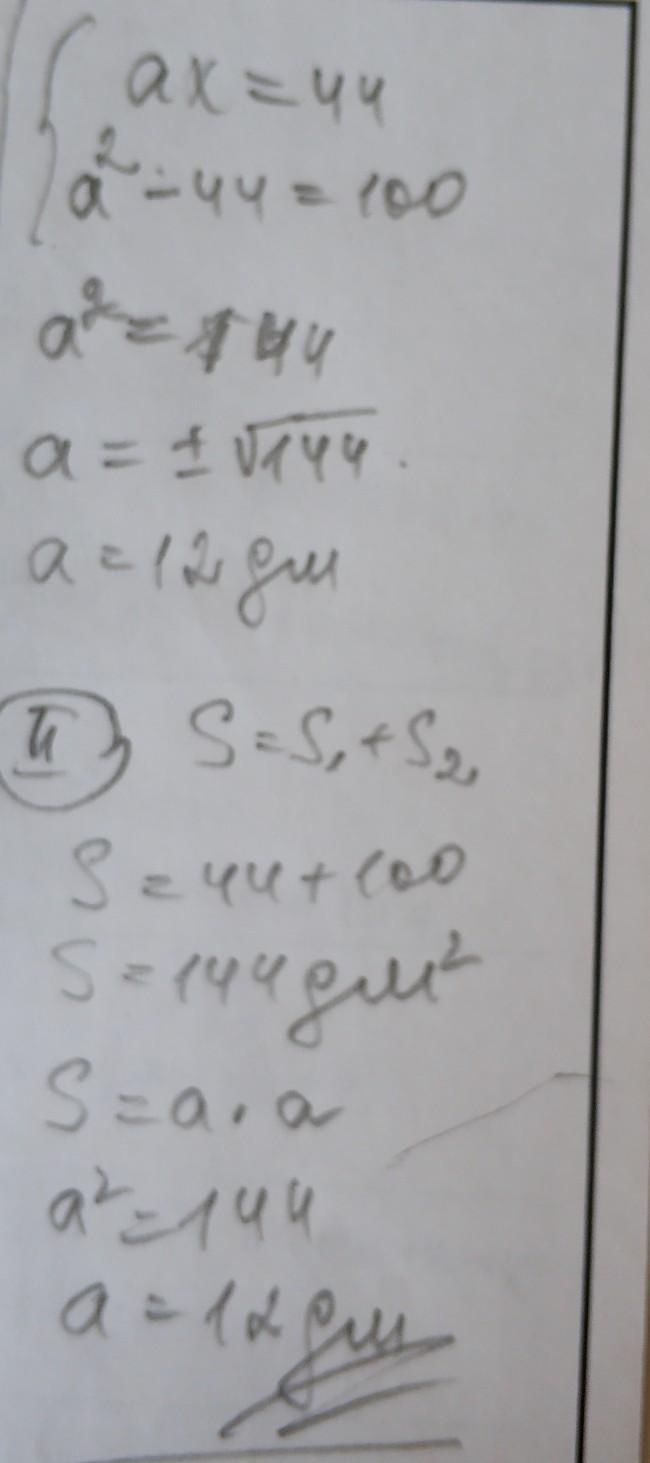 ax = 44
a² - 44 = 100
a² = 144
a = ± √144.
a = 12 дм
II) S = S₁ + S₂
S = 44 + 100
S = 144 дм²
S = a · a
a² = 144
a = 12 дм